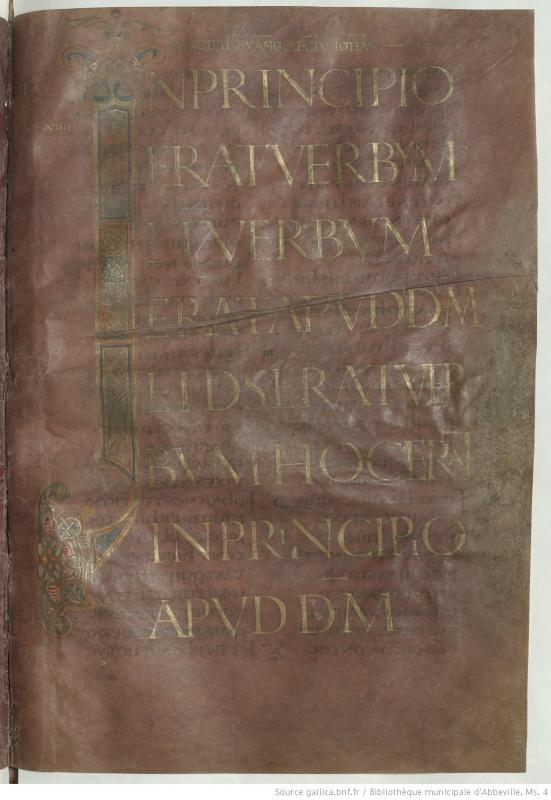 EVANG SECD IOHAN
INPRINCIPIO
ERATVERBVM
ETVERBVM
ERATAPVDDM
ETDSERATVER
BVMHOCERAT
INPRINCIPIO
APVDDM
Source gallica.bnf.fr / Bibliothèque municipale d'Abbeville. Ms. 4